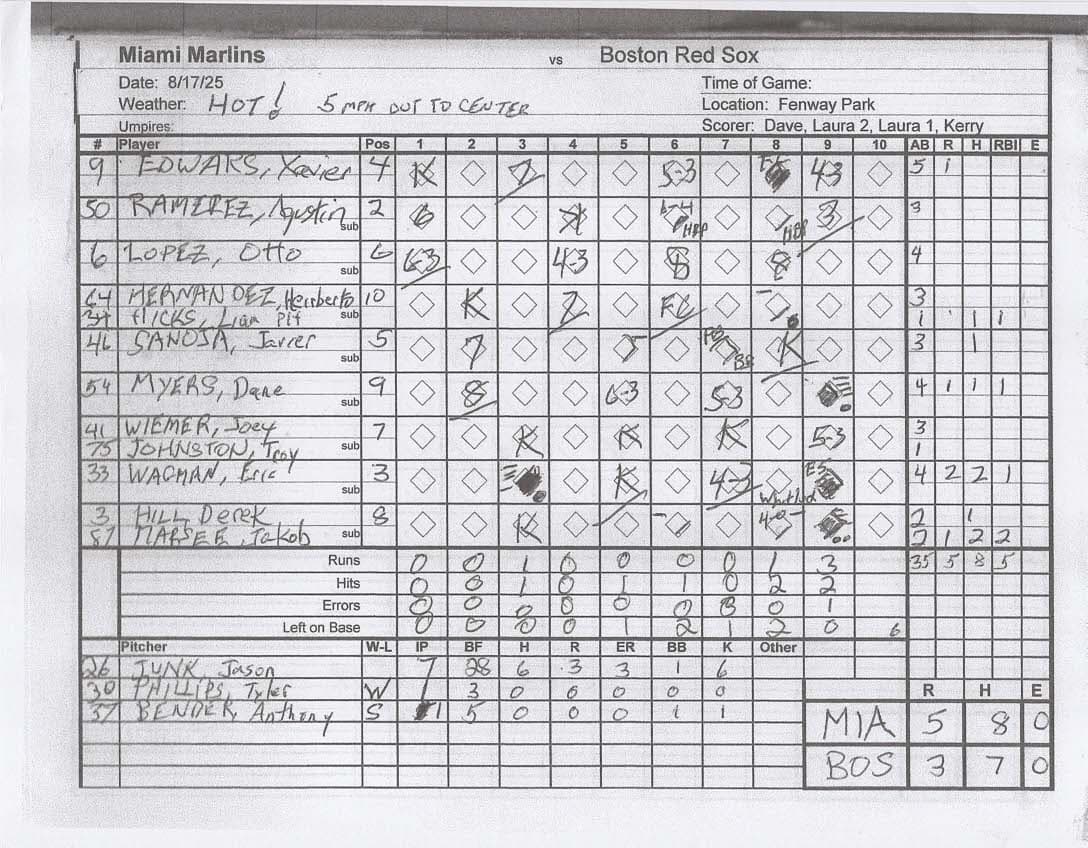 Miami Marlins vs Boston Red Sox
Date: 8/17/25 Time of Game:
Weather: HOT! 5 MPH OUT TO CENTER Location: Fenway Park
Umpires: Scorer: Dave, Laura 2, Laura 1, Kerry
# Player Pos 1 2 3 4 5 6 7 8 9 10 AB R H RBI E
9 EDWAKS, Xavier 4 K 7 5-3 4-3 5 1
50 RAMEREZ, Agustin sub 2 6 K 6-4 HBP HBP 3 3
6 LOPEZ, Otto sub 6 6-3 4-3 8 8 4
64 HERNANDEZ, Heriberto 10 K 7 FC 3
34 HICKS, Liam PH sub 1 1 1
46 SANOJA, Javier sub 5 7 7 BB K 3 1
54 MYERS, Dane sub 9 8 6-3 5-3 4 1 1 1
41 WIEMER, Joey 7 K K K 5-3 3
75 JOHNSTON, Troy sub 1
33 WAGMAN, Eric sub 3 K 4-3 4 2 2 1
3 HILL, Derek 8 K 2 1
87 MARSEE, Jakob sub 2 1 2 2
Runs 0 0 1 0 0 0 0 1 3 35 5 8 5
Hits 0 0 1 0 1 1 0 2 2
Errors 0 0 0 0 0 0 0 1
Left on Base 0 0 0 0 1 2 1 2 0 6
Pitcher W-L IP BF H R ER BB K Other
26 JUNK, Jason 7 28 6 3 3 1 6
30 PHILLIPS, Tyler W 1 3 0 0 0 0 0
37 BENDER, Anthony S 1 5 0 0 0 1 1
R H E
MIA 5 8 0
BOS 3 7 0